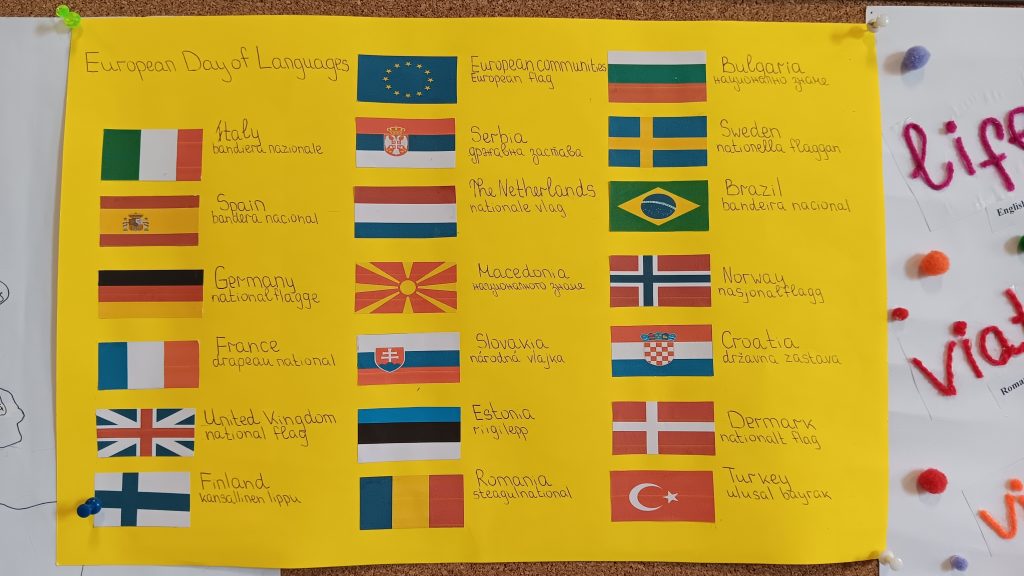 European Day of Languages
Italy
bandiera nazionale
Spain
bandera nacional
Germany
nationalflagge
France
drapeau national
United Kingdom
national flag
Finland
kansallinen lippu
European communities
European flag
Serbia
државна застава
The Netherlands
nationale vlag
Macedonia
националното знаме
Slovakia
národná vlajka
Estonia
riigilepp
Romania
steagulnational
Bulgaria
национално знаме
Sweden
nationella flaggan
Brazil
bandeira nacional
Norway
nasjonalflagg
Croatia
državna zastava
Denmark
nationalt flag
Turkey
ulusal bayrak
life
English